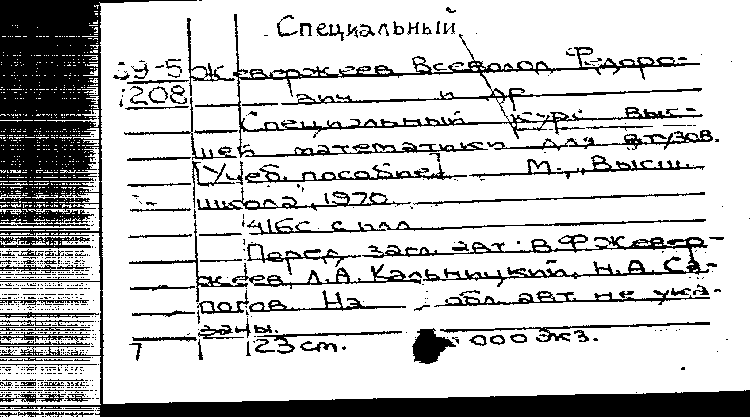 Специальный
Жевержеев Всеволод Федоро-
1208 вич и др
Специальный курс выс-
шей математики для втузов.
[Учеб. пособие] М., „Высш.
школа", 1970
416с с илл
Перед загл. авт: В.Ф Жевер-
жеев, Л.А. Кальницкий, Н.А. Са-
погов. На обл. авт. не ука-
заны.
7 23 см. 000 экз.